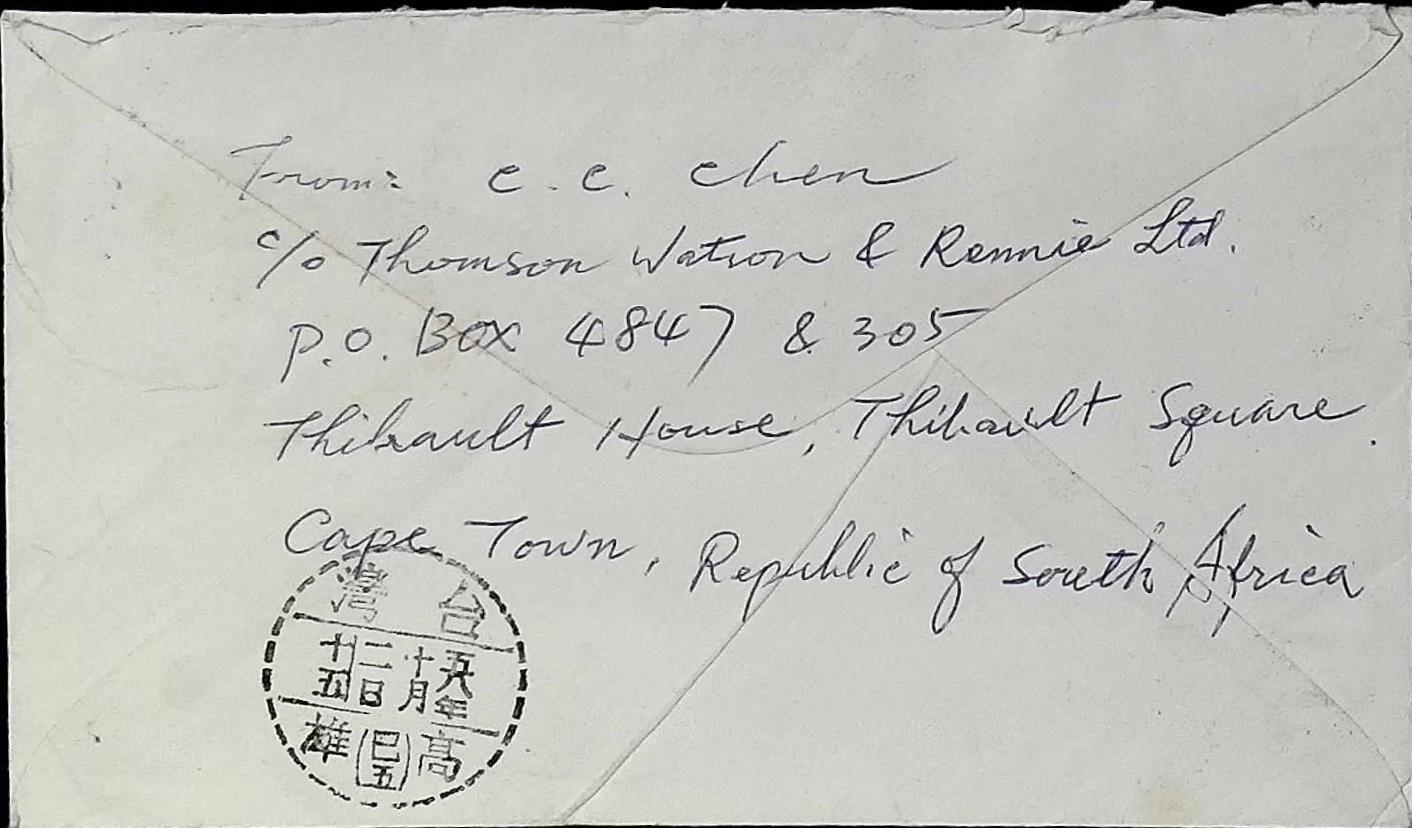 From: C. C. Chen
c/o Thomson Watson & Rennie Ltd.
P.O. Box 4847 & 305
Thibault House, Thibault Square.
Cape Town, Republic of South Africa
台灣
五八年
十月
二日
十五
高雄
(巳五)